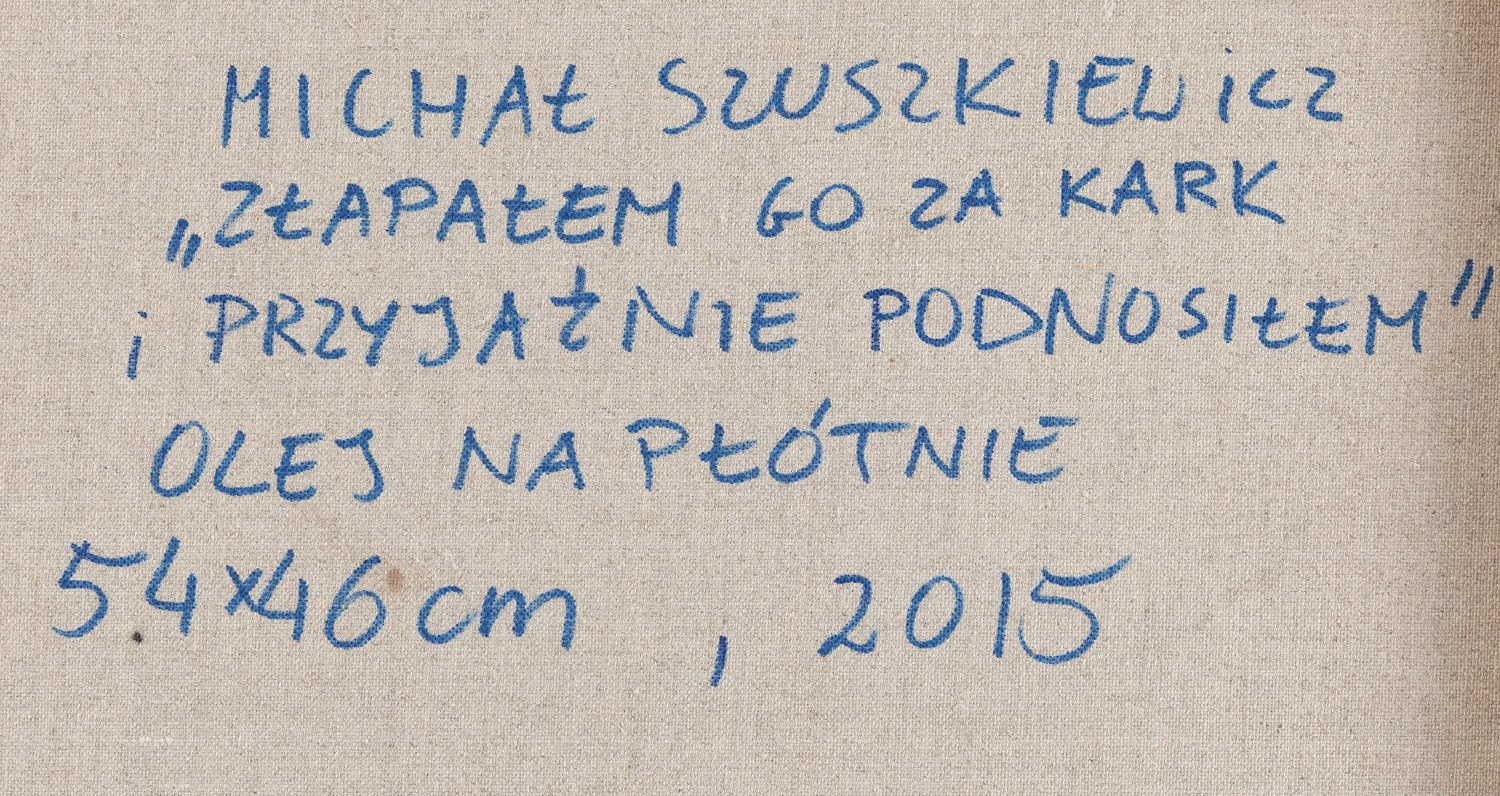 MICHAŁ SZUSZKIEWiCZ
„ZŁAPAŁEM GO ZA KARK
i PRZYJAŹNIE PODNOSIŁEM"
OLEJ NA PŁÓTNIE
54x46cm , 2015